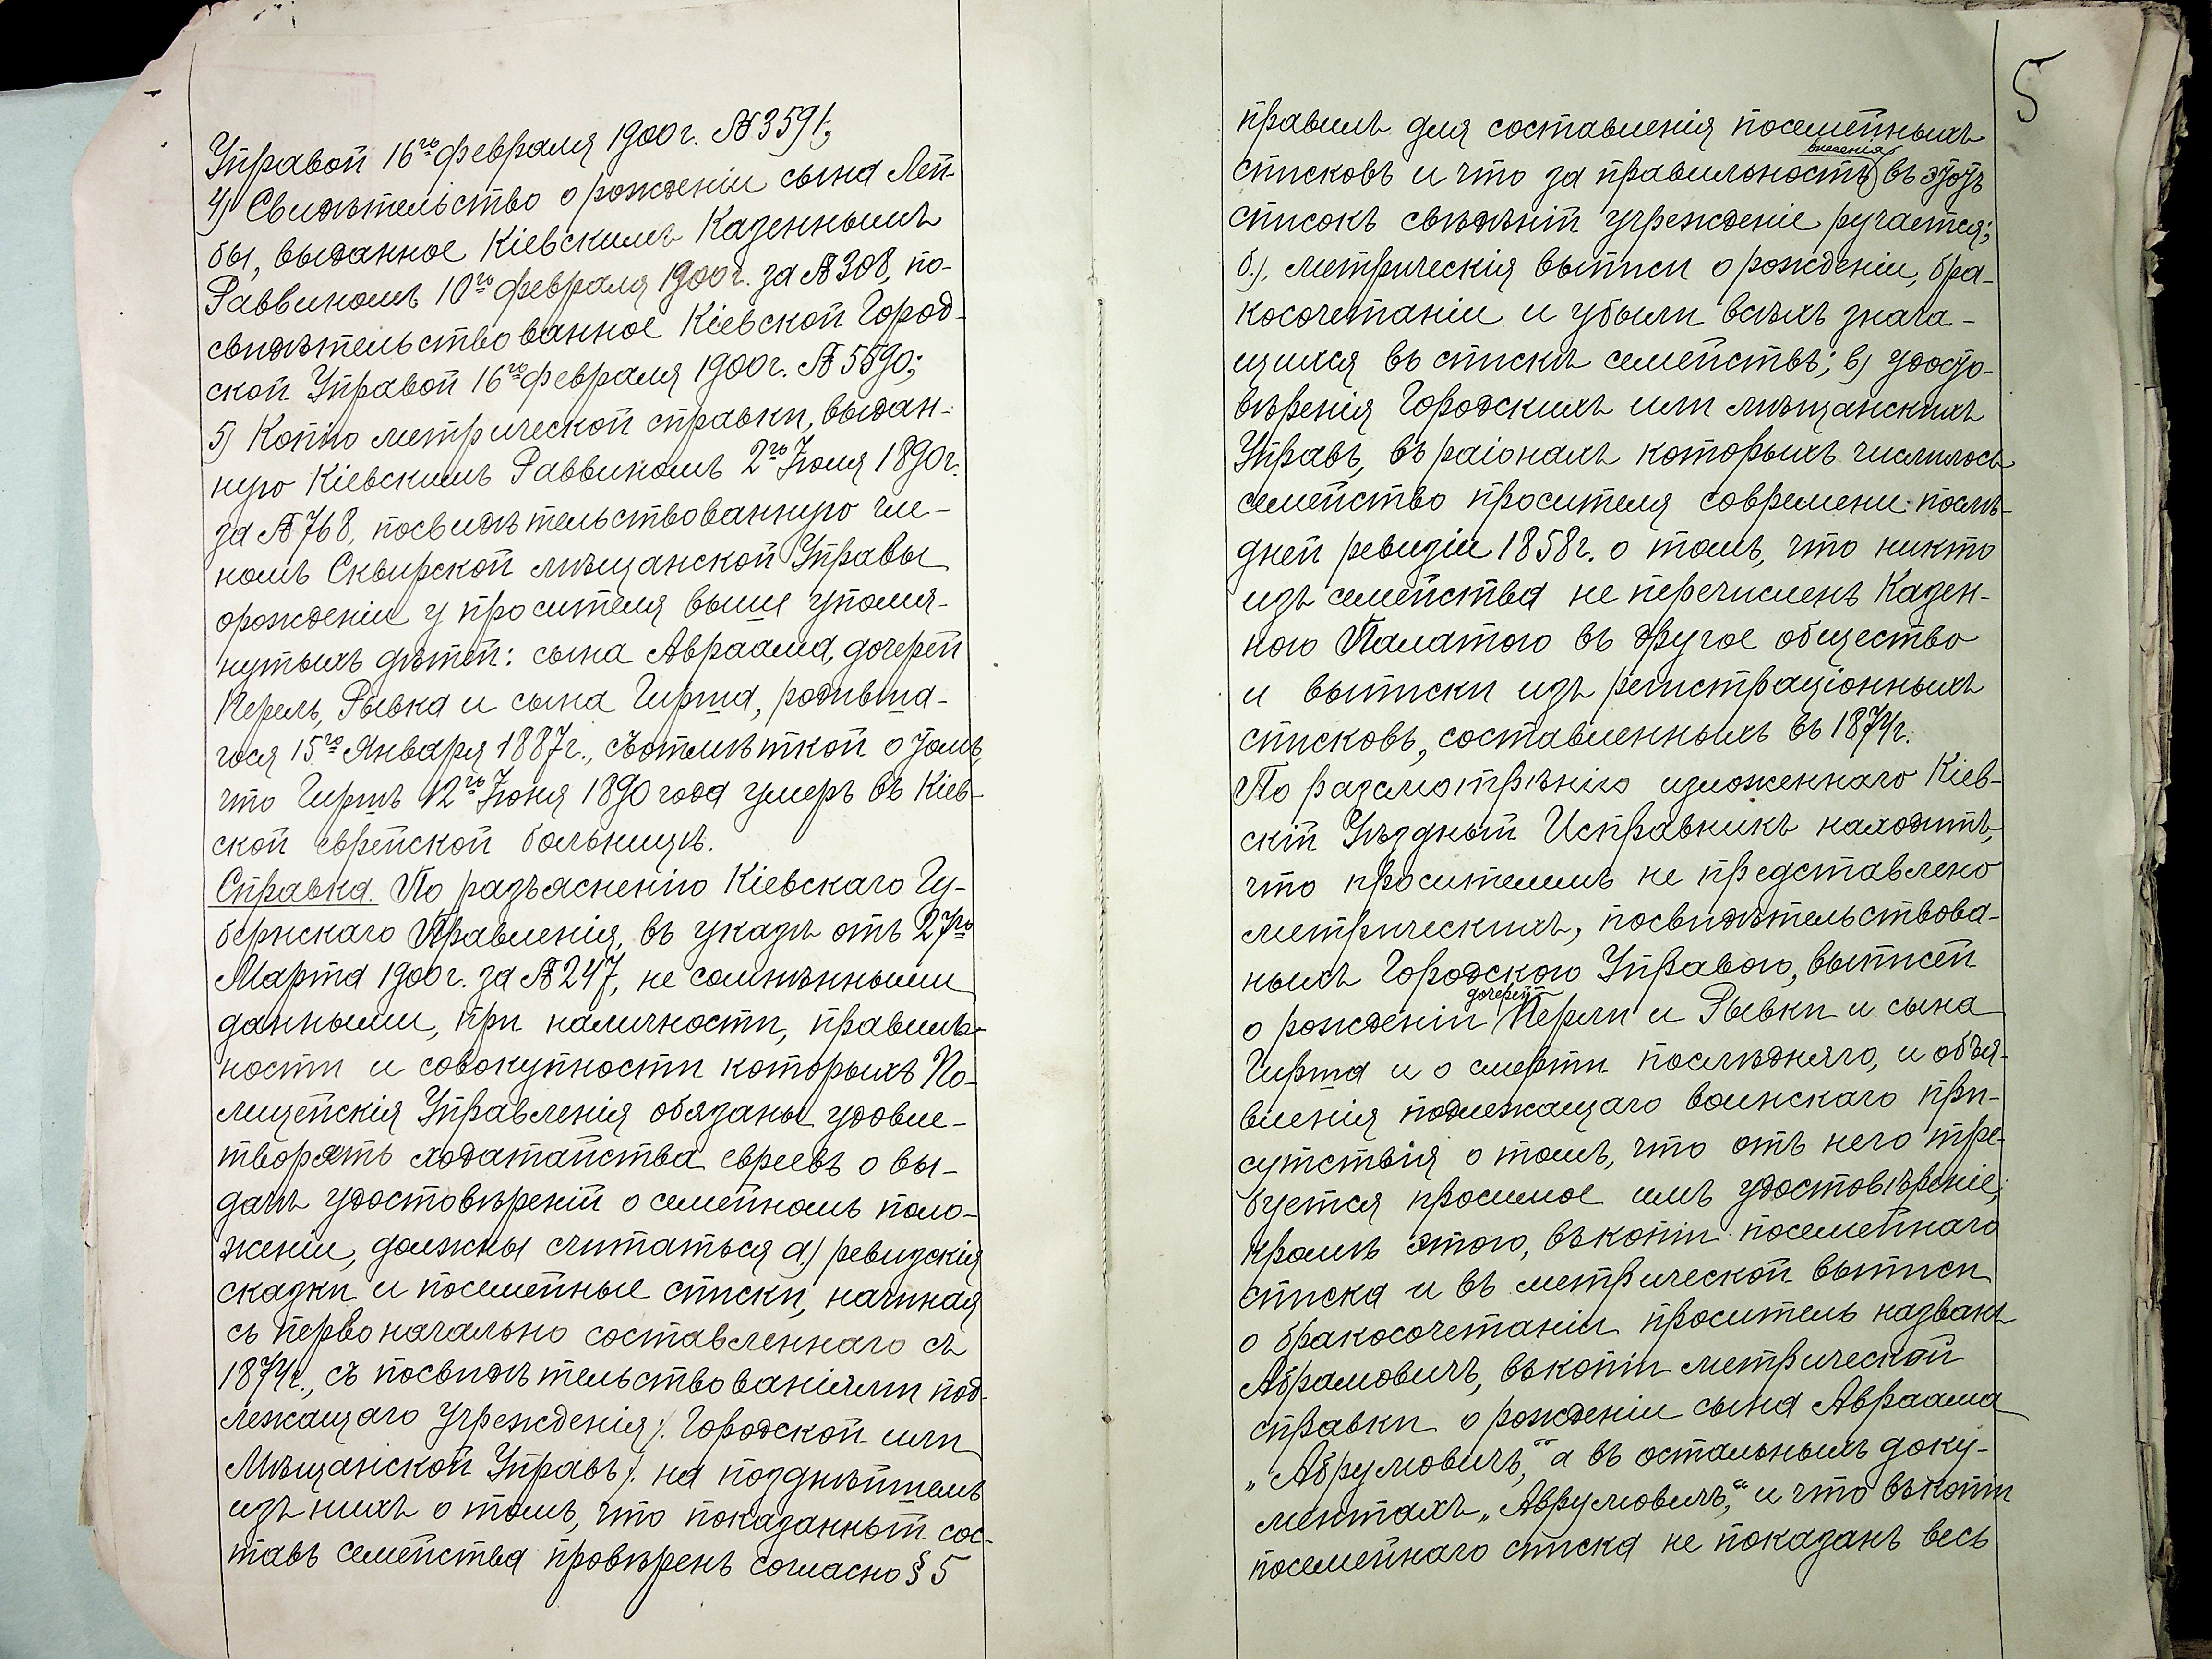 Управой 16го февраля 1900г. № 3591;
4) Свидѣтельство о рожденіи сына Лей-
бы, выданное Кіевскимъ Казеннымъ
Раввиномъ 10го февраля 1900г. за № 308, по-
свидѣтельствованное Кіевской Город-
ской Управой 16го февраля 1900г. № 5590;
5) Копію метрической справки, выдан-
ную Кіевскимъ Раввиномъ 2го Іюля 1890г.
за № 768, посвидѣтельствованную чле-
номъ Сквирской мѣщанской Управы
орожденіи у просителя выше упомя-
нутыхъ дѣтей: сына Авраама, дочерей
Перель, Рывка и сына Гирша, родивша-
гося 15го Января 1887г., съотмѣткой о томъ,
что Гиршъ 12го Іюня 1890 года умеръ въ Кіев-
ской еврейской больницѣ.
Справка. По разъясненію Кіевскаго Гу-
бернскаго Правленія, въ указѣ отъ 27го
Марта 1900г. за № 247, не сомнѣнными
данными, при наличности, правиль-
ности и совокупности которыхъ По-
лицейскія Управленія обязаны удовле-
творять ходатайства евреевъ о вы-
дачѣ удостовѣреній о семейномъ поло-
женіи, должны считаться а) ревизскія
сказки и посемейные списки, начиная
съ первоначально составленнаго съ
1874г., съ посвидѣтельствованіями под-
лежащаго учрежденія /: Городской или
Мѣщанской Управъ :/ на позднѣйшемъ
изъ нихъ о томъ, что показанный сос-
тавъ семейства провѣренъ согласно § 5
5
правилъ для составленія посемейныхъ
внесенія
списковъ и что за правильность въ этотъ
списокъ свѣдѣній учрежденіе ручается;
б). метрическія выписи о рожденіи, бра-
косочетаніи и убыли всѣхъ знача-
щихся въ спискѣ семействъ; в) удосто-
вѣренія Городскихъ или мѣщанскихъ
Управъ, въ раіонахъ которыхъ числилось
семейство просителя современи послѣ-
дней ревизіи 1858г. о томъ, что никто
изъ семейства не перечисленъ Казен-
ною Палатою въ другое общество
и выписки изъ регистраціонныхъ
списковъ, составленныхъ въ 1874г.
По разсмотрѣнію изложеннаго Кіев-
скій Уѣздный Исправникъ находитъ,
что просителемъ не представлено
метрическихъ, посвидѣтельствова-
ныхъ Городскою Управою, выписей
дочерей
о рожденіи Перли и Рывки и сына
Гирша и о смерти послѣдняго, и объя-
вленія подлежащаго воинскаго при-
сутствія о томъ, что отъ него тре-
буется просимое имъ удостовѣреніе;
кромѣ этого, въкопіи посемейнаго
списка и въ метрической выписи
о бракосочетаніи проситель названъ
Абрамовичъ, въкопіи метрической
справки о рожденіи сына Авраама
„Абрумовичъ,“ а въ остальныхъ доку-
ментахъ „Аврумовичъ,“ и что въкопіи
посемейнаго списка не показанъ весь